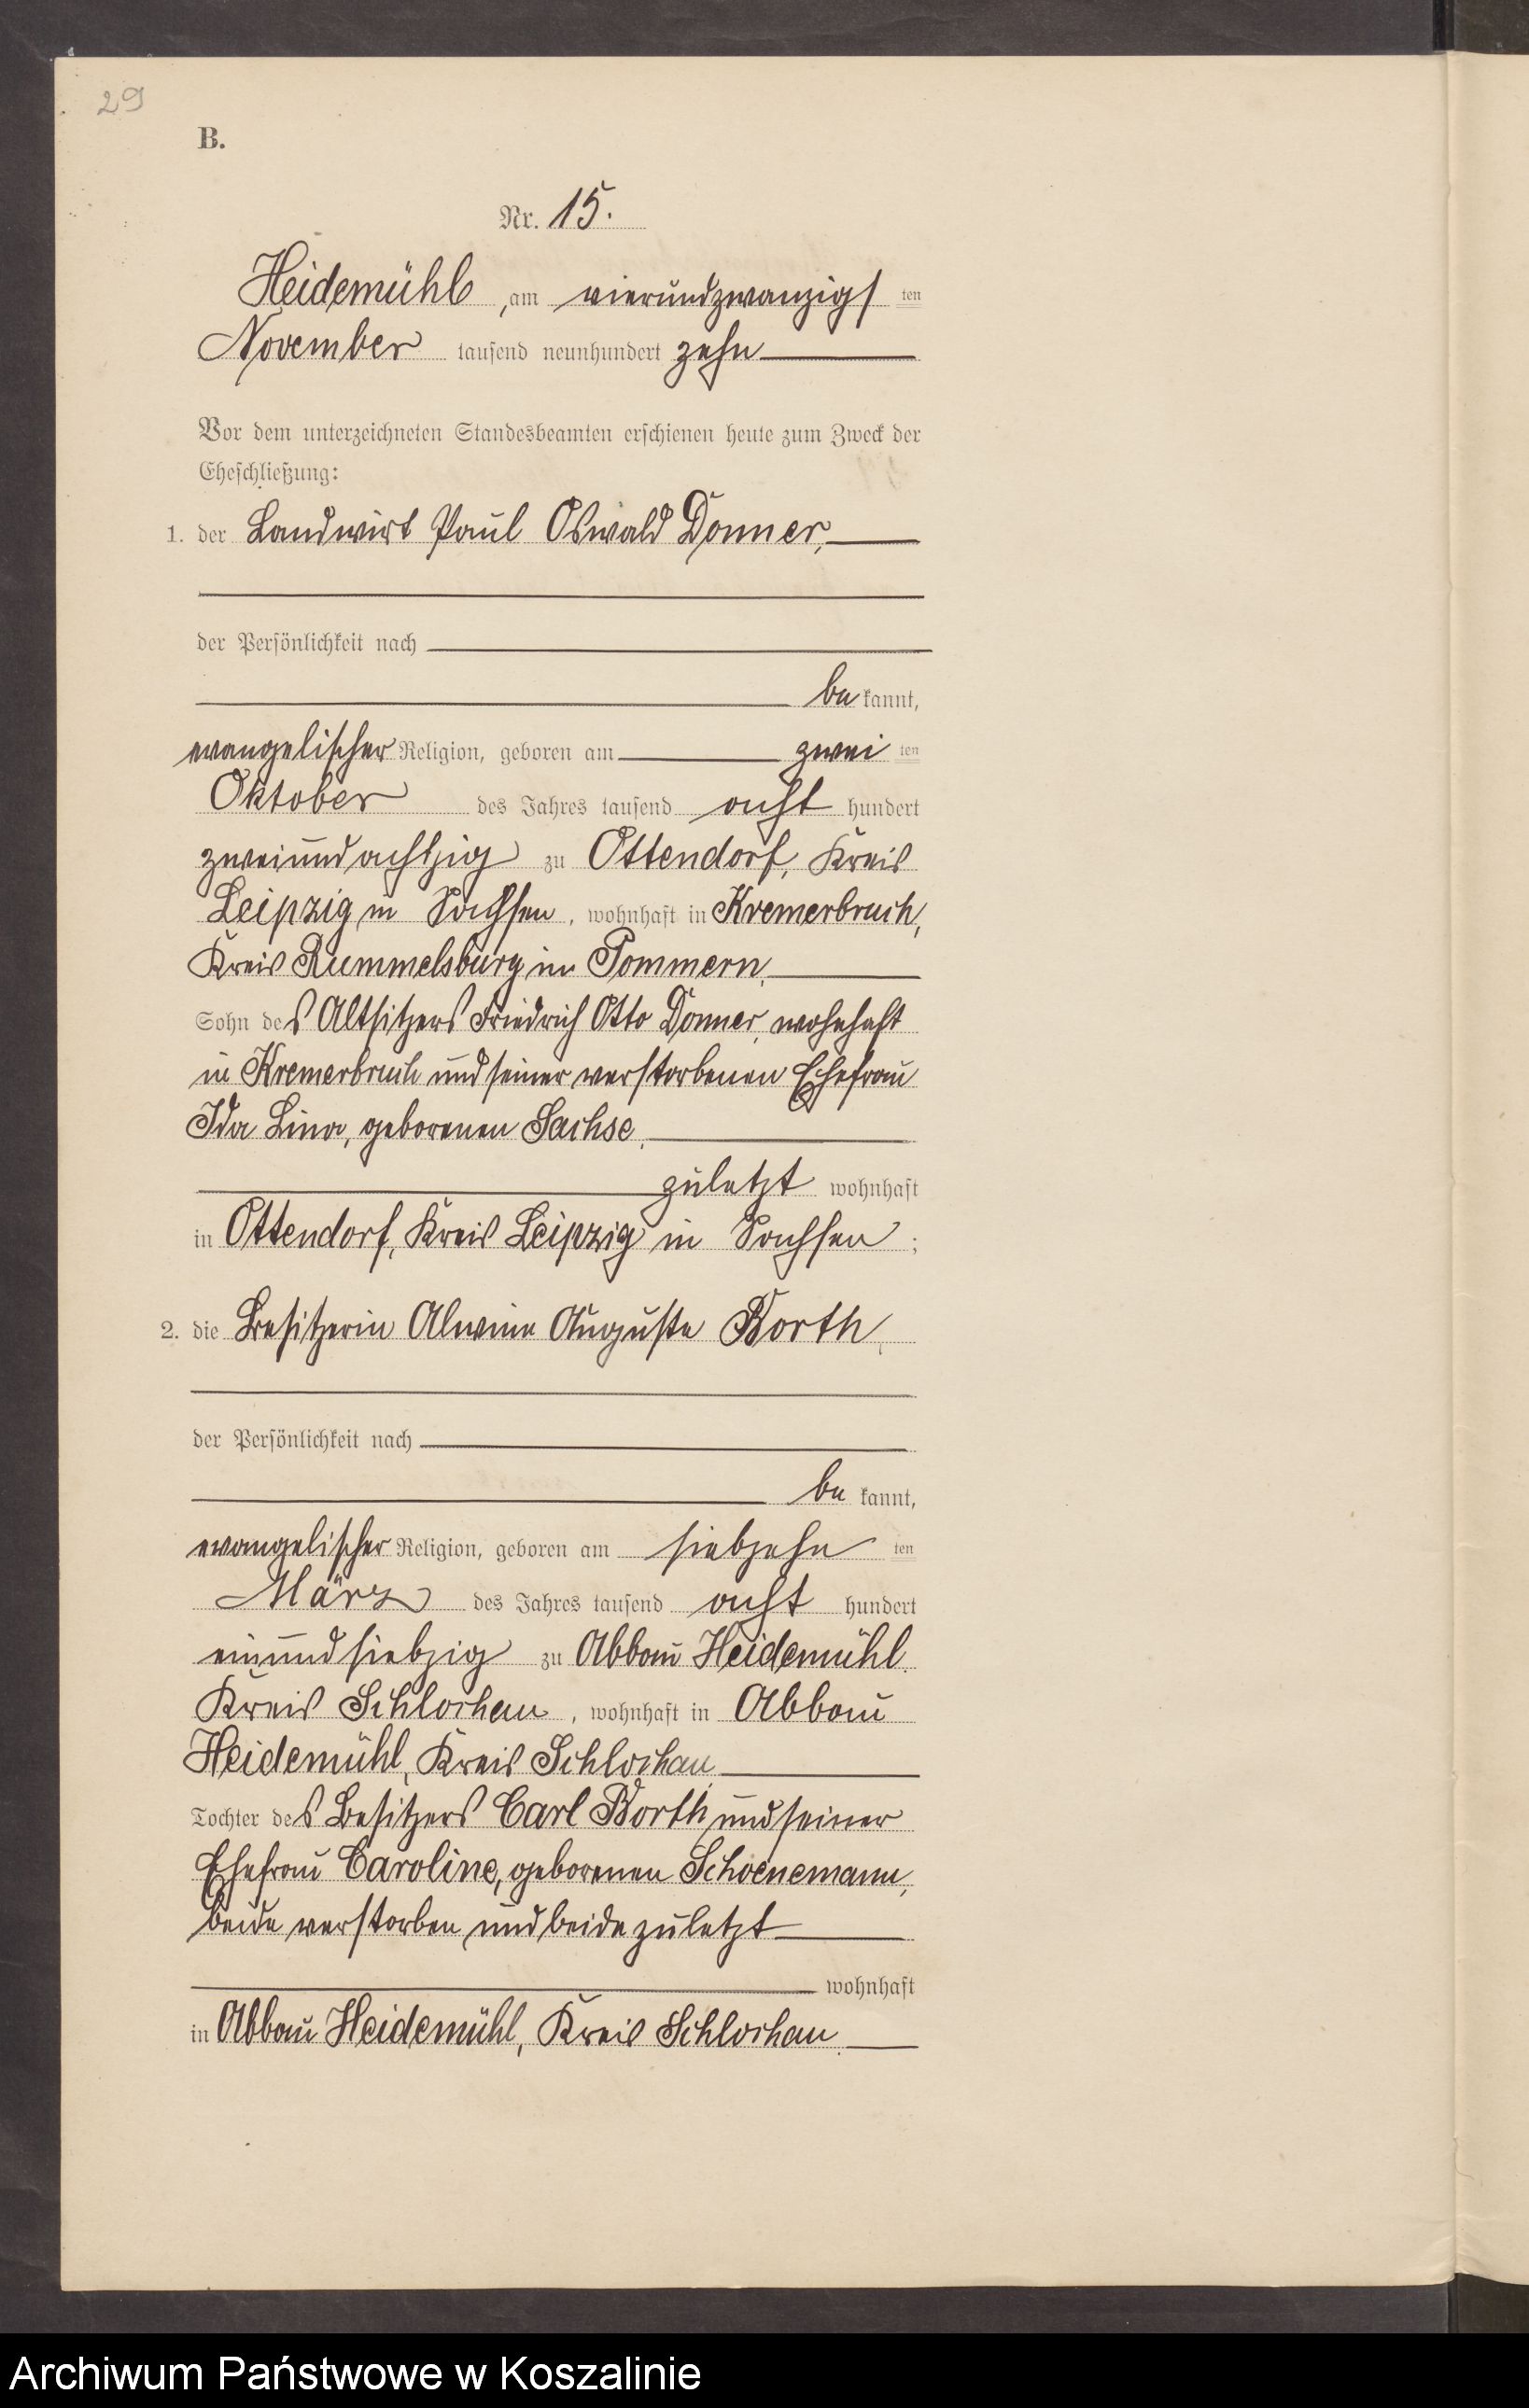 29
B.
Nr. 15.
Heidemühl, am vierundzwanzigs ten
November tausend neunhundert zehn
Vor dem unterzeichneten Standesbeamten erschienen heute zum Zweck der
Eheschließung:
1. der Landwirt Paul Oswald Donner,
der Persönlichkeit nach
be kannt,
evangelischer Religion, geboren am zwei ten
Oktober des Jahres tausend acht hundert
zweiundachtzig zu Ottendorf, Kreis
Leipzig in Sachsen, wohnhaft in Kremerbruch,
Kreis Rummelsburg in Pommern,
Sohn des Altsitzers Friedrich Otto Donner, wohnhaft
in Kremerbruch und seiner verstorbenen Ehefrau
Ida Lina, geborenen Sachse,
zuletzt wohnhaft
in Ottendorf, Kreis Leipzig in Sachsen;
2. die Besitzerin Alwine Auguste Borth,
der Persönlichkeit nach
be kannt,
evangelischer Religion, geboren am siebzehn ten
März des Jahres tausend acht hundert
einundsiebzig zu Abbau Heidemühl
Kreis Schlochau, wohnhaft in Abbau
Heidemühl, Kreis Schlochau,
Tochter des Besitzers Carl Borth und seiner
Ehefrau Caroline, geborenen Schoenemann,
beide verstorben und beide zuletzt
wohnhaft
in Abbau Heidemühl, Kreis Schlochau.
Archiwum Państwowe w Koszalinie